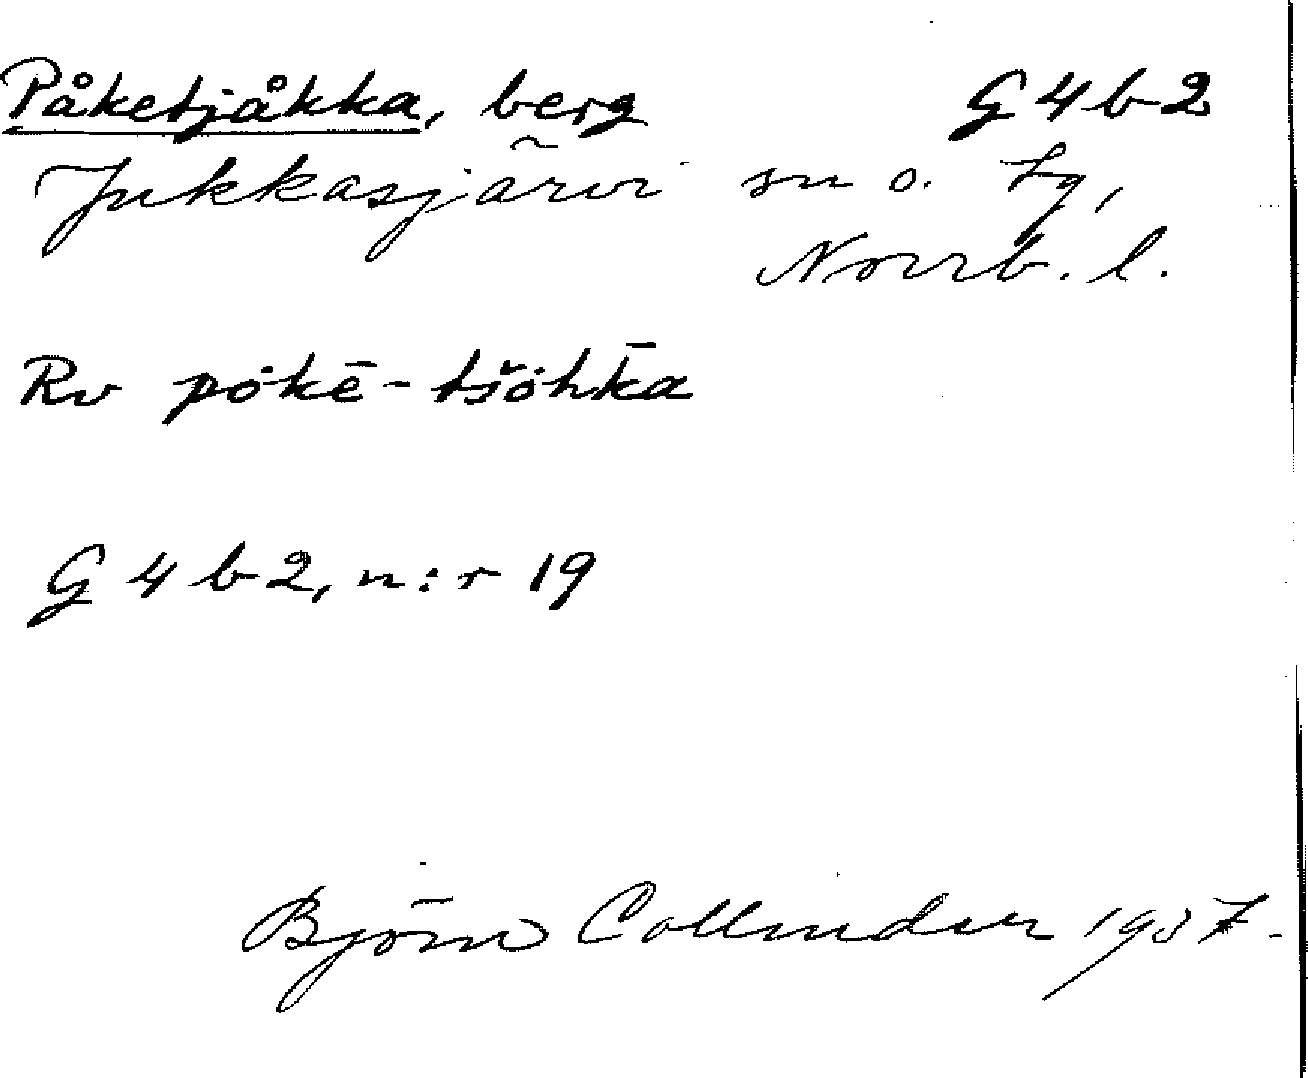 Påketjåkka, berg G4b2
Jukkasjärvi sn o. tg,
Norrb. l.
Rv pȯkē-tšȯhk̄a
G4b2, n:r 19
Björn Collinder 1937.